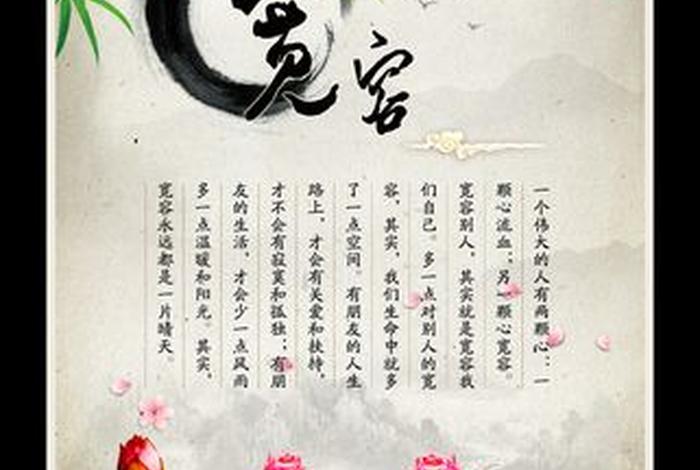 宽容
一个伟大的人有两颗心：一
颗心流血；另一颗心宽容。
宽容别人，其实就是宽容我
们自己。多一点对别人的宽
容，其实，我们生命中就多
了一点空间。有朋友的人生
路上，才会有关爱和扶持，
才不会有寂寞和孤独；有朋
友的生活，才会少一点风雨
多一点温暖和阳光。其实，
宽容永远都是一片晴天。